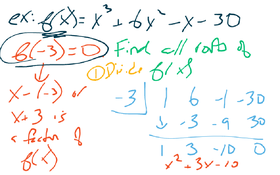 ex: f(x) = x³ + 6x² - x - 30
f(-3) = 0 Find all roots of f(x)
① Divide
x - (-3) or
x + 3 is
a factor of
f(x)
-3 | 1 6 -1 -30
↓ -3 -9 30
1 3 -10 0
x² + 3x - 10